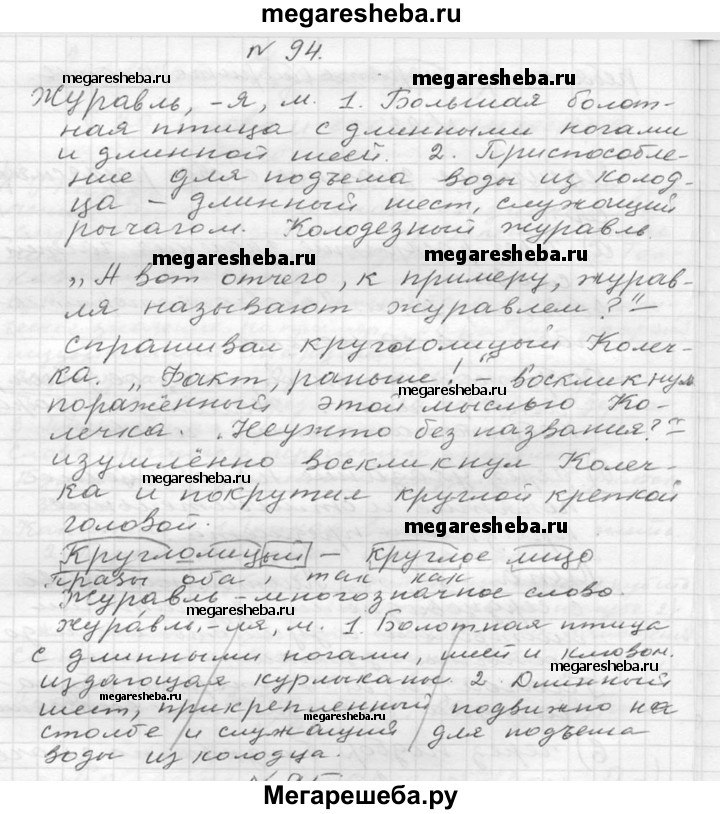 megaresheba.ru
N 94.
megaresheba.ru
megaresheba.ru
Журавль, -я, м. 1. Большая болот-
ная птица с длинными ногами
и длинной шеей. 2. Приспособле-
ние для подъема воды из колод-
ца - длинный шест, служащий
рычагом. Колодезный журавль.
megaresheba.ru
megaresheba.ru
„А вот отчего, к примеру, журав-
ля называют журавлем?" -
спрашивал круглолицый Колеч-
ка. „Факт, раньше!" - воскликнул
megaresheba.ru
поражённый этой мыслью Ко-
лечка. „Неужто без названия?" -
изумлённо воскликнул Колеч-
ка и покрутил круглой крепкой
megaresheba.ru
головой.
megaresheba.ru
Круглолицый - круглое лицо
Правы оба, так как
Журавль - многозначное слово.
megaresheba.ru
журавль, -ля, м. 1. Болотная птица
с длинными ногами, шеей и клювом,
издающая курлыканье. 2. Длинный
megaresheba.ru
megaresheba.ru
шест, прикрепленный подвижно на
megaresheba.ru
столбе и служащий для подъема
воды из колодца.
megaresheba.ru
megaresheba.ru
Мегарешеба.ру